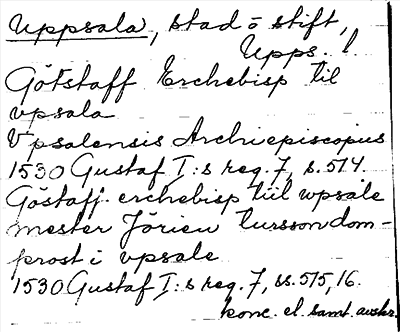 Uppsala, stad o stift,
Upps. l.
Götstaff Erchebisp til
vpsala
Vpsalensis Archiepiscopus
1530 Gustaf I:s reg. 7, s. 514.
Göstaff erchebisp tiil wpsale
mester Jörien tursson dom-
prost i vpsale
1530 Gustaf I:s reg. 7, ss. 515, 16.
konc. el. samt. avskr.